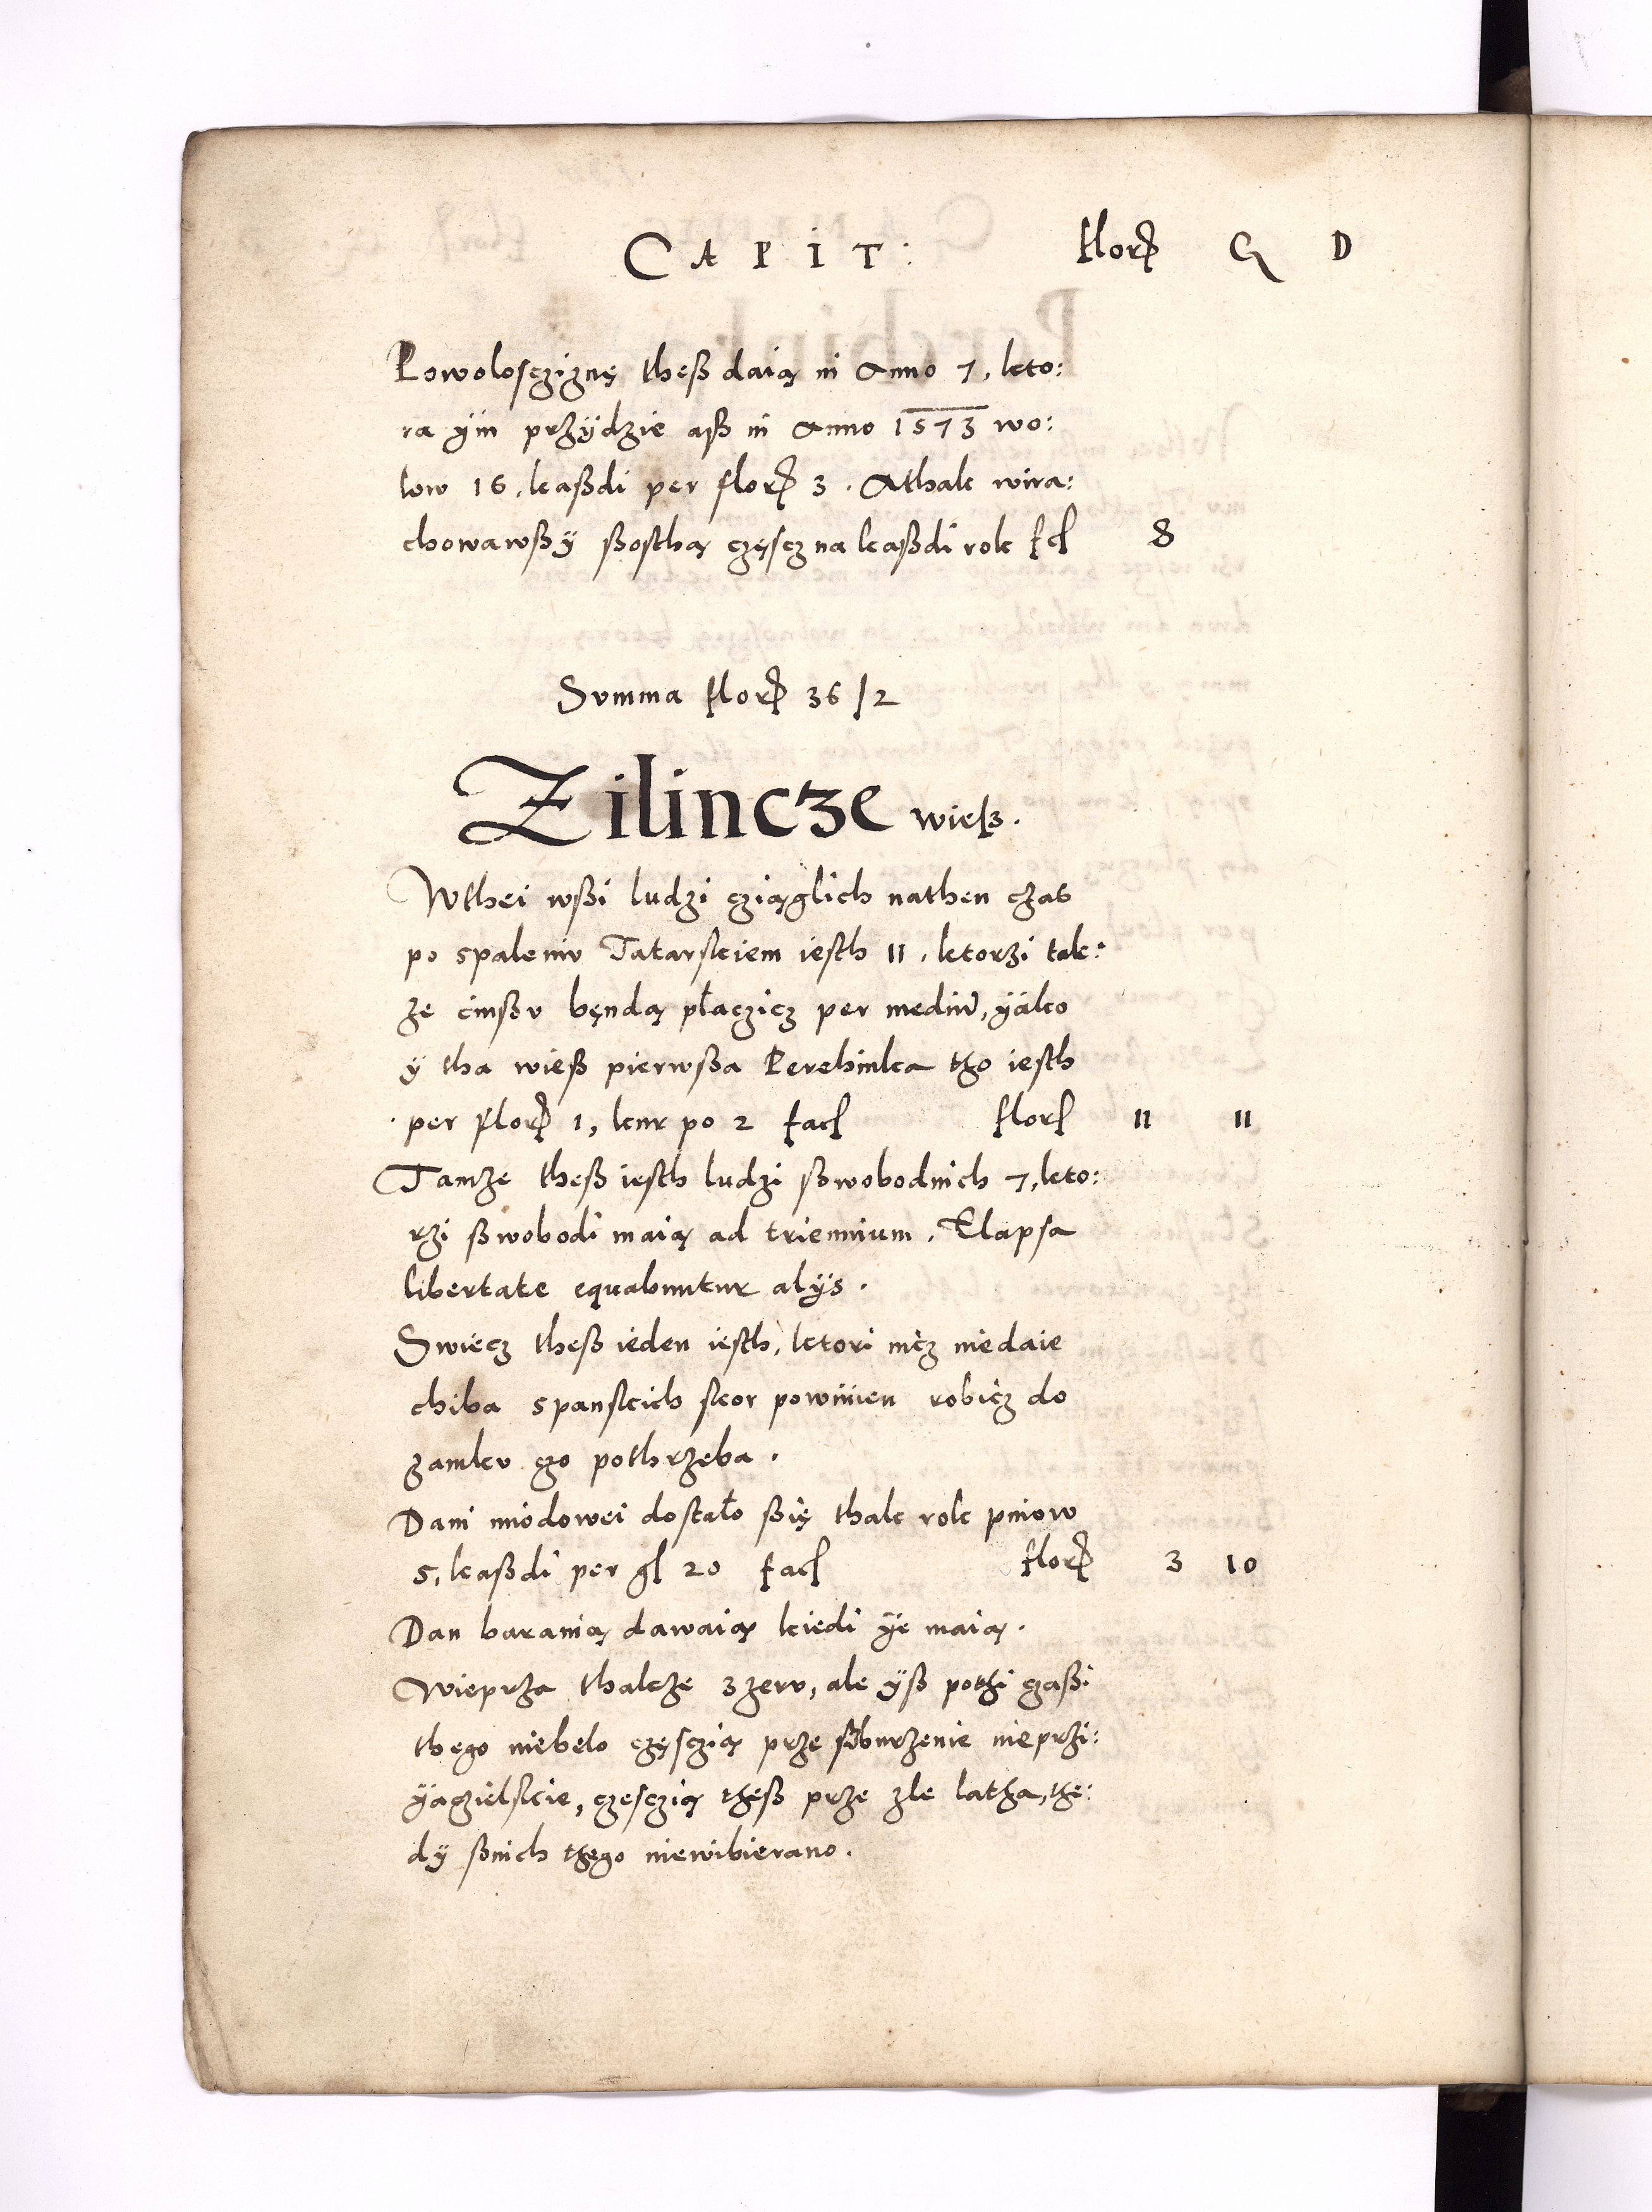 CAPIT: flor G D
Powolosczignę theß daią in Anno 7, kto:
ra ÿm przÿdzie aß in Anno 1573 wo:
low 16, kaßdi per flor 3. Athak wira:
chowawßÿ ßosthą częscz na kaßdi rok fcl 8
Summa flor 36/2
Zilincze wieß.
Wthei wßi ludzi cziąglich nathen czas
po spaleniv Tatarskiem iesth 11, ktorzi tak:
ze cinßv bęndą płaczicz per mediu, ÿako
ÿ tha wieß pierwßa Perehinka tho iesth
per flor 1, kur po 2 facl flor 11 11
Tamze theß iesth ludzi ßwobodnich 7, kto:
rzi ßwobodi maią ad triennium. Elapsa
libertate equabuntur alÿs.
Swiecz theß ieden iesth, ktori nicz niedaie
chiba spanskich skor powinien robicz do
zamkv czo pothrzeba.
Dani miodowei dostało ßię thak rok pniow
5, kaßdi per gl 20 facl flor 3 10
Dan baranią dawaią kiedi ÿe maią.
Wieprza thakze 3zerv, ale ÿß pothi czaßi
thego niebelo częsczią prze ßburzenie nieprzi:
ÿaczielskie, czesczią theß prze zle latha, the:
dÿ ßnich thego niewibierano.